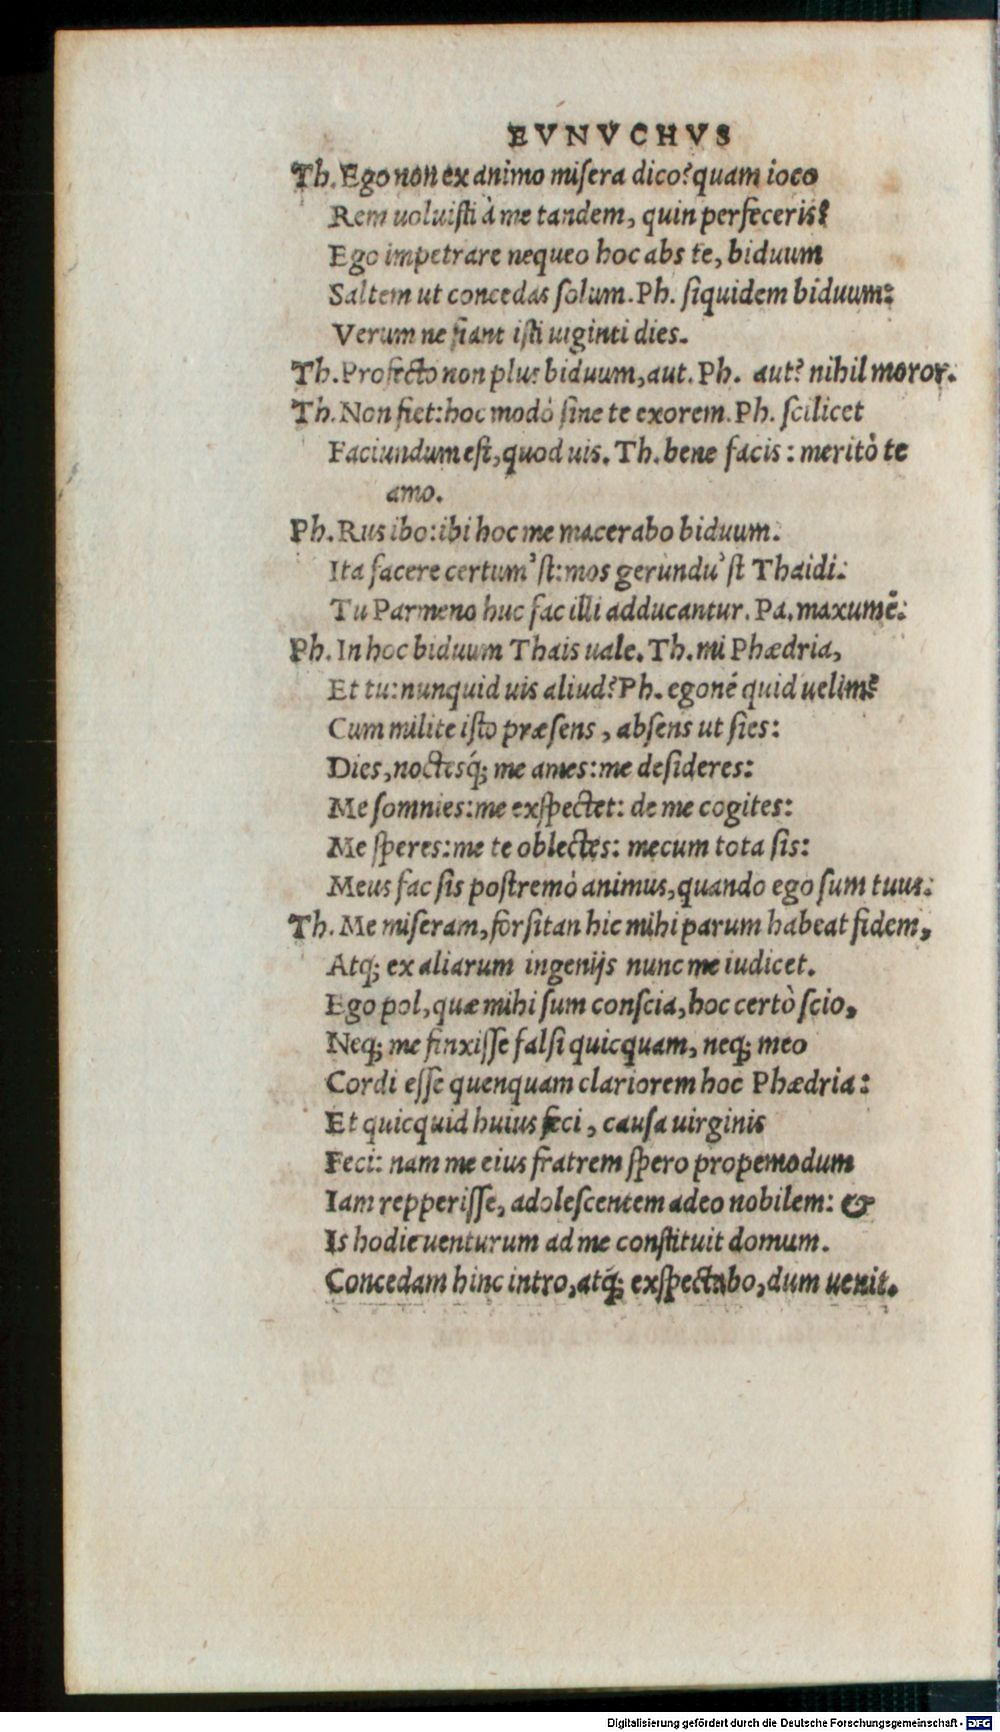 EVNVCHVS
Th. Ego non ex animo misera dico? quam ioco
Rem uoluisti à me tandem, quin perfeceris?
Ego impetrare nequeo hoc abs te, biduum
Saltem ut concedas solum. Ph. siquidem biduum:
Verum ne fiant isti uiginti dies.
Th. Profecto non plus biduum, aut. Ph. aut? nihil moror.
Th. Non fiet: hoc modò sine te exorem. Ph. scilicet
Faciundum est, quod uis. Th. bene facis: meritò te
amo.
Ph. Rus ibo: ibi hoc me macerabo biduum.
Ita facere certum'st: mos gerundu'st Thaidi:
Tu Parmeno huc fac illi adducantur. Pa. maxumé:
Ph. In hoc biduum Thais uale. Th. mi Phædria,
Et tu: nunquid uis aliud? Ph. egoné quid uelim?
Cum milite isto præsens, absens ut sies:
Dies, noctesq́; me ames: me desideres:
Me somnies: me exspectet: de me cogites:
Me speres: me te oblectes: mecum tota sis:
Meus fac sis postremò animus, quando ego sum tuus:
Th. Me miseram, forsitan hic mihi parum habeat fidem,
Atq; ex aliarum ingenijs nunc me iudicet.
Ego pol, quæ mihi sum conscia, hoc certò scio,
Neq; me finxisse falsi quicquam, neq; meo
Cordi esse quenquam clariorem hoc Phædria:
Et quicquid huius feci, causa uirginis
Feci: nam me eius fratrem spero propemodum
Iam repperisse, adolescentem adeo nobilem: &
Is hodie uenturum ad me constituit domum.
Concedam hinc intro, atq́; exspectabo, dum uenit.
Digitalisierung gefördert durch die Deutsche Forschungsgemeinschaft - DFG